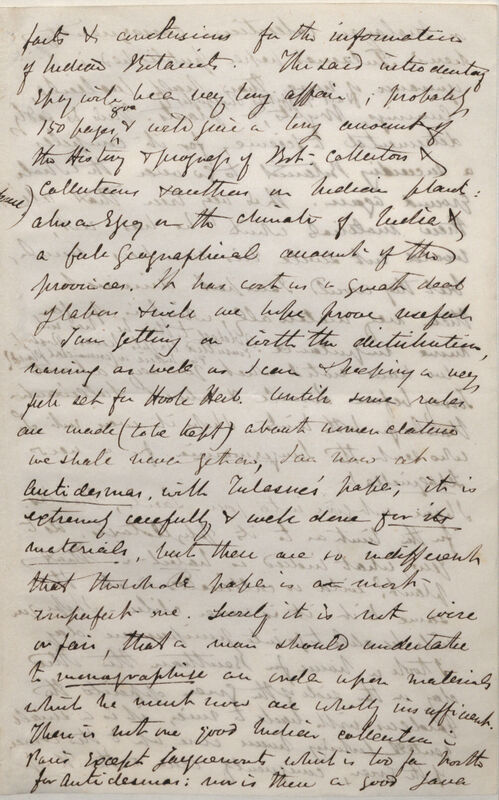 facts & conclusions for the information
of Indian Botanists. The said introductory
Essay will be a very long affair; probably
150 pages 8vo & will give a long account of
the History & progress of Bot. collectors &
collections & authors on Indian plants:
also a Essay on the climate of India &
a full Geographical account of the
provinces. It has cost us a great deal
of labor & will we hope prove useful.
I am getting on with the distribution,
naming as well as I can & keeping a very
full set for Hook Herb. Until some rules
are made (to be kept) about nomenclature
we shall never get on, I am now at
Antidesmas, with Tulasne's paper, it is
extremely carefully & well done for its
materials, but these are so indifferent
that the whole paper is a most
imperfect one. Surely it is not wise
or fair, that a man should undertake
to monographise an order upon materials
which he must know are wholly insufficient.
There is not one good Indian collection in
Paris Except Jacquemonts which is too far North
for Antidesmas: nor is there a good Java